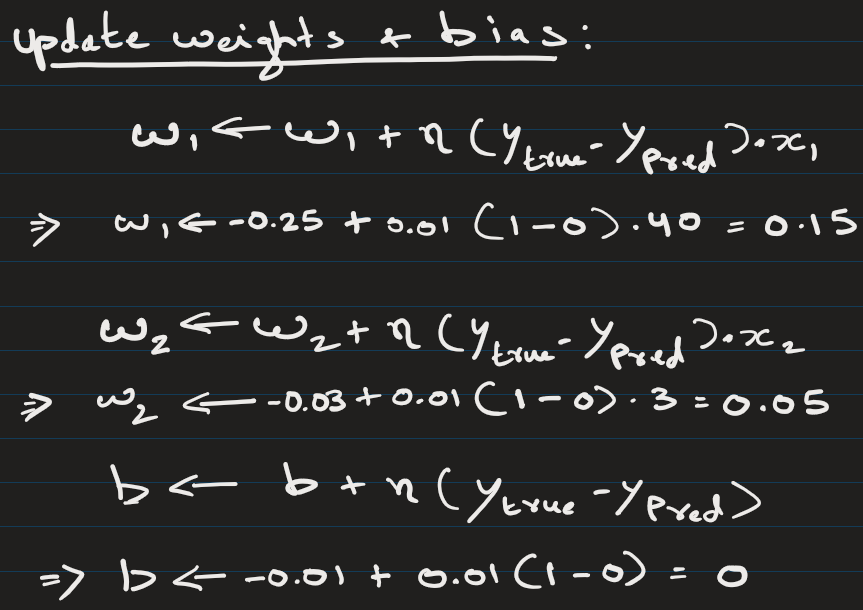 Update weights & bias:
w₁ ← w₁ + η (y_true - y_pred).x₁
⇒ w₁ ← -0.25 + 0.01 (1-0).40 = 0.15
w₂ ← w₂ + η (y_true - y_pred).x₂
⇒ w₂ ← -0.03 + 0.01 (1-0).3 = 0.05
b ← b + η (y_true - y_pred)
⇒ b ← -0.01 + 0.01 (1-0) = 0